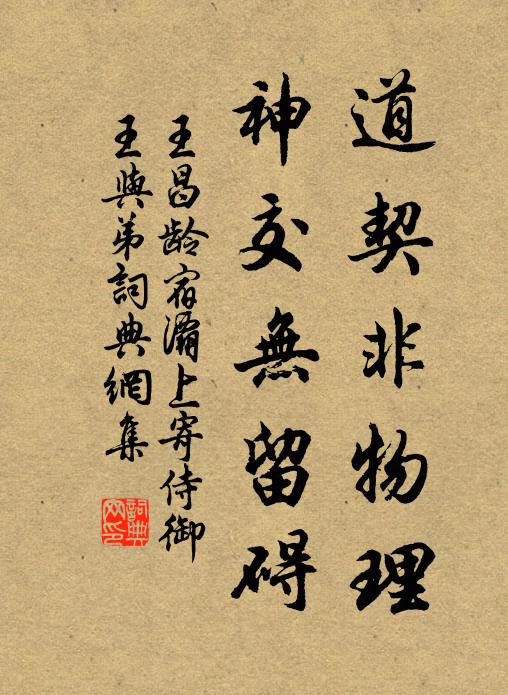 道契非物理
神交無留碍
王昌龄宿灞上寄侍御
王與弟詞典網集
詞典網印